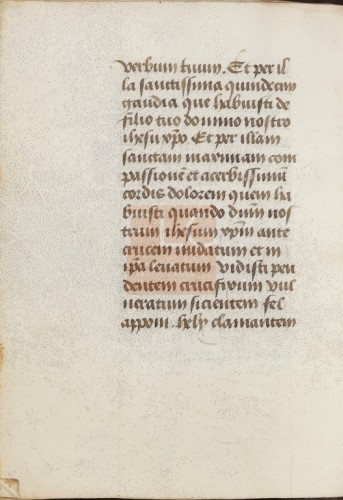 verbum tuum. Et per il
la sanctissima quindecim
gaudia que habuisti de
filio tuo domino nostro
ihesu xpo. Et per illam
sanctam maximam com
passionē et acerbissimū
cordis dolorem quem ha
buisti quando dnm̄ nos
trum ihesum xpm̄ ante
crucem nudatum et in
ipā leuatum vidisti pen
dentem crucifixum vul
neratum sicientem fel
apponi. hely clamantem